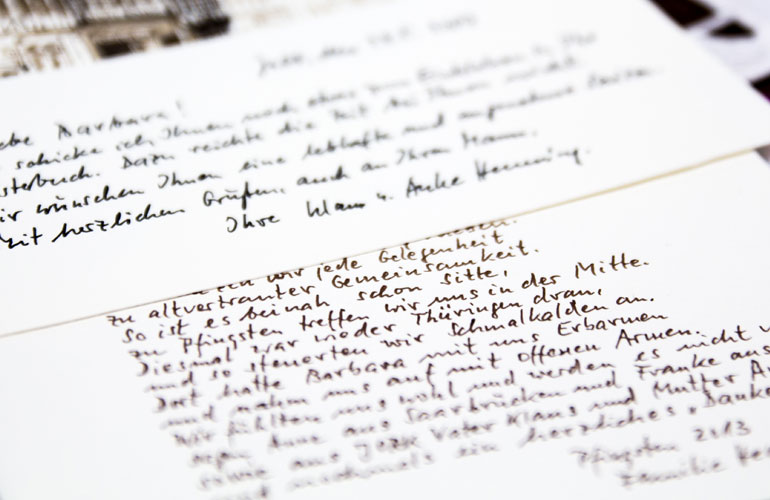 ebe Barbara!
schicke ich Ihnen noch
sterbuch. Dazu reichte die Zeit bei Ihnen
ir wünschen Ihnen eine lebhafte und angenehme
Mit herzlichen Grüßen, auch an Ihren Mann,
Ihre Klaus u. Anke Henning.
wir jede Gelegenheit
zu altvertrauter Gemeinsamkeit.
So ist es beinah schon Sitte,
zu Pfingsten treffen wir uns in der Mitte.
Diesmal war wieder Thüringen dran,
und so steuerten wir Schmalkalden an.
Dort hatte Barbara mit uns Erbarmen
und nahm uns auf mit offenen Armen.
Wir fühlten uns wohl und werden es nicht v
Anne aus Saarbrücken und Franke aus
sowie aus Jork Vater Klaus und Mutter An
nochmals ein herzliches "Danke
Pfingsten 2013
Familie He